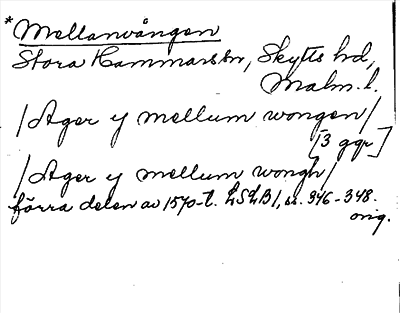 * Mellanvången
Stora Hammars sn, Skytts hd,
Malm. l.
/Ager y mellum wongen/
[3 ggr]
/Ager y mellum wongh/
förra delen av 1570-t. LSLB1, s. 346-348.
orig.